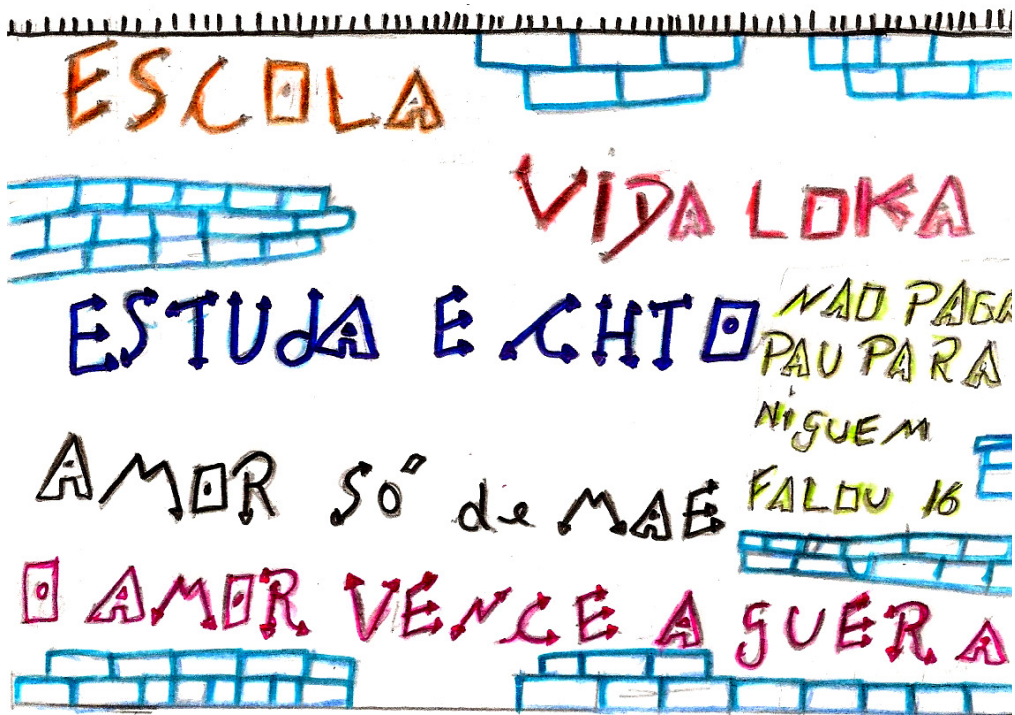 ESCOLA
VIDA LOKA
ESTUDA E CHTO
NAO PAGA
PAU PARA
NiGUEM
FALOU 16
AMOR SÓ de MAE
O AMOR VENCE A gUERA